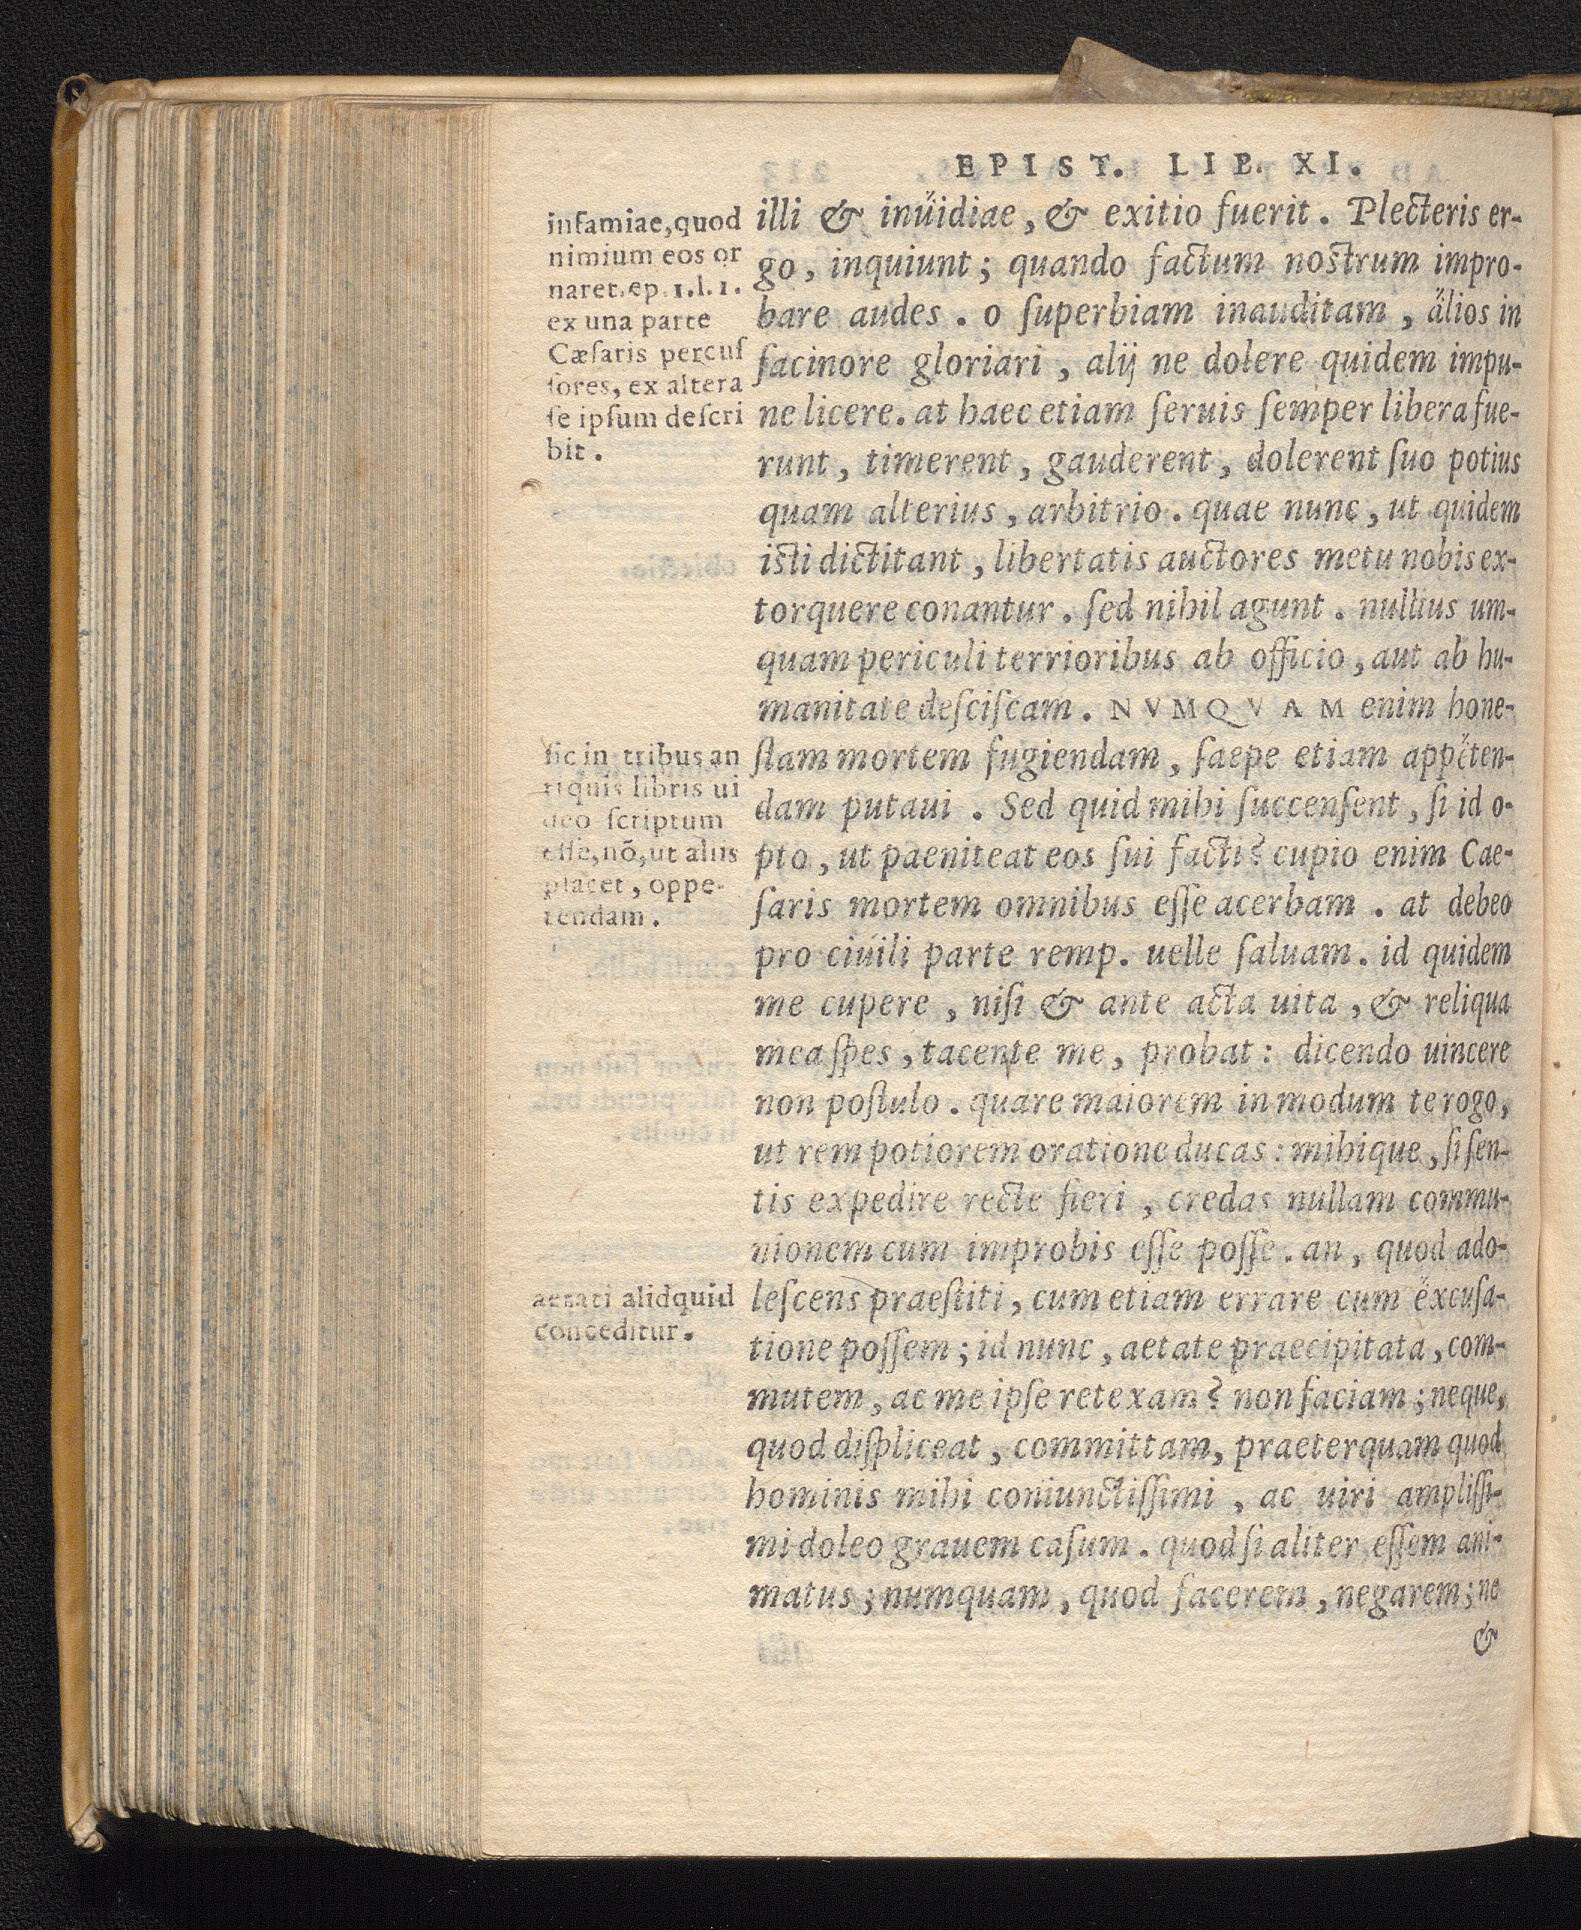 EPIST. LIB. XI.
infamiae, quod
nimium eos or
naret. ep. 1. l. 1.
ex una parte
Cæsaris percus
sores, ex altera
se ipsum descri
bit.
sic in tribus an
tiquis libris ui
deo scriptum
esse, nõ, ut aliis
placet, oppe-
tendam.
aetati alidquid
conceditur.
illi & inuidiae, & exitio fuerit. Plecteris er-
go, inquiunt; quando factum nostrum impro-
bare audes. o superbiam inauditam, alios in
facinore gloriari, alij ne dolere quidem impu-
ne licere. at haec etiam seruis semper libera fue-
runt, timerent, gauderent, dolerent suo potius
quam alterius, arbitrio. quae nunc, ut quidem
isti dictitant, libertatis auctores metu nobis ex-
torquere conantur. sed nihil agunt. nullius um-
quam periculi terrioribus ab officio, aut ab hu-
manitate desciscam. NVMQVAM enim hone-
stam mortem fugiendam, saepe etiam appeten-
dam putaui. Sed quid mihi succensent, si id o-
pto, ut paeniteat eos sui facti? cupio enim Cae-
saris mortem omnibus esse acerbam. at debeo
pro ciuili parte remp. uelle saluam. id quidem
me cupere, nisi & ante acta uita, & reliqua
mea spes, tacente me, probat: dicendo uincere
non postulo. quare maiorem in modum te rogo,
ut rem potiorem oratione ducas: mihique, si sen-
tis expedire recte fieri, credas nullam commu-
nionem cum improbis esse posse. an, quod ado-
lescens praestiti, cum etiam errare cum excusa-
tione possem; id nunc, aetate praecipitata, com-
mutem, ac me ipse retexam? non faciam; neque,
quod displiceat, committam, praeterquam quod
hominis mihi coniunctissimi, ac uiri amplissi-
mi doleo grauem casum. quod si aliter essem ani-
matus; numquam, quod facerem, negarem; ne
&